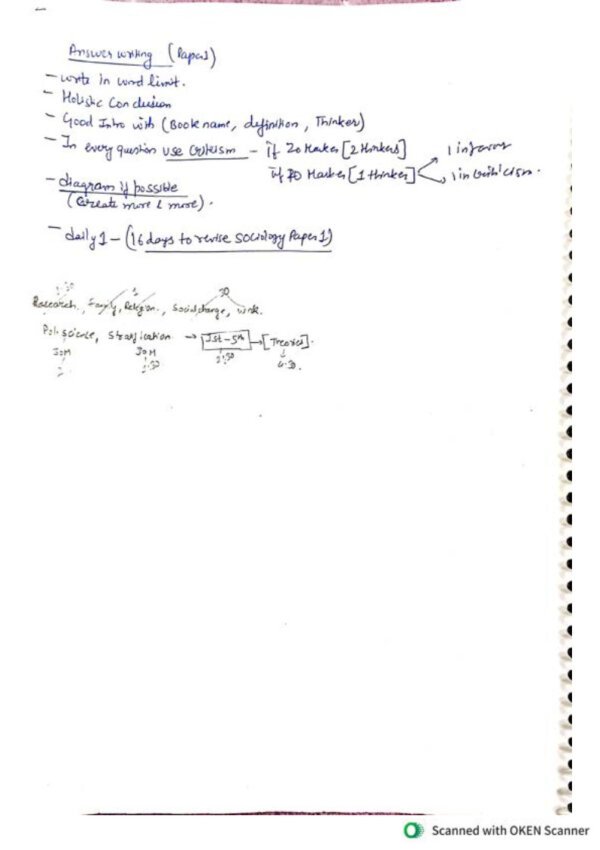 Answer writing (Paper 1)
- write in word limit.
- Holistic Conclusion
- Good Intro with (Book name, definition, Thinker)
- In every question use criticism - if 20 Marker [2 thinkers] 1 in favour
if 10 Marker [1 thinker] 1 in criticism.
- diagram if possible
(Create more & more).
- daily 1 - (16 days to revise sociology Paper 1)
Research, Family, Religion, Social change, work.
Pol. science, Stratification → 1st - 5th → [Theories].
Scanned with OKEN Scanner